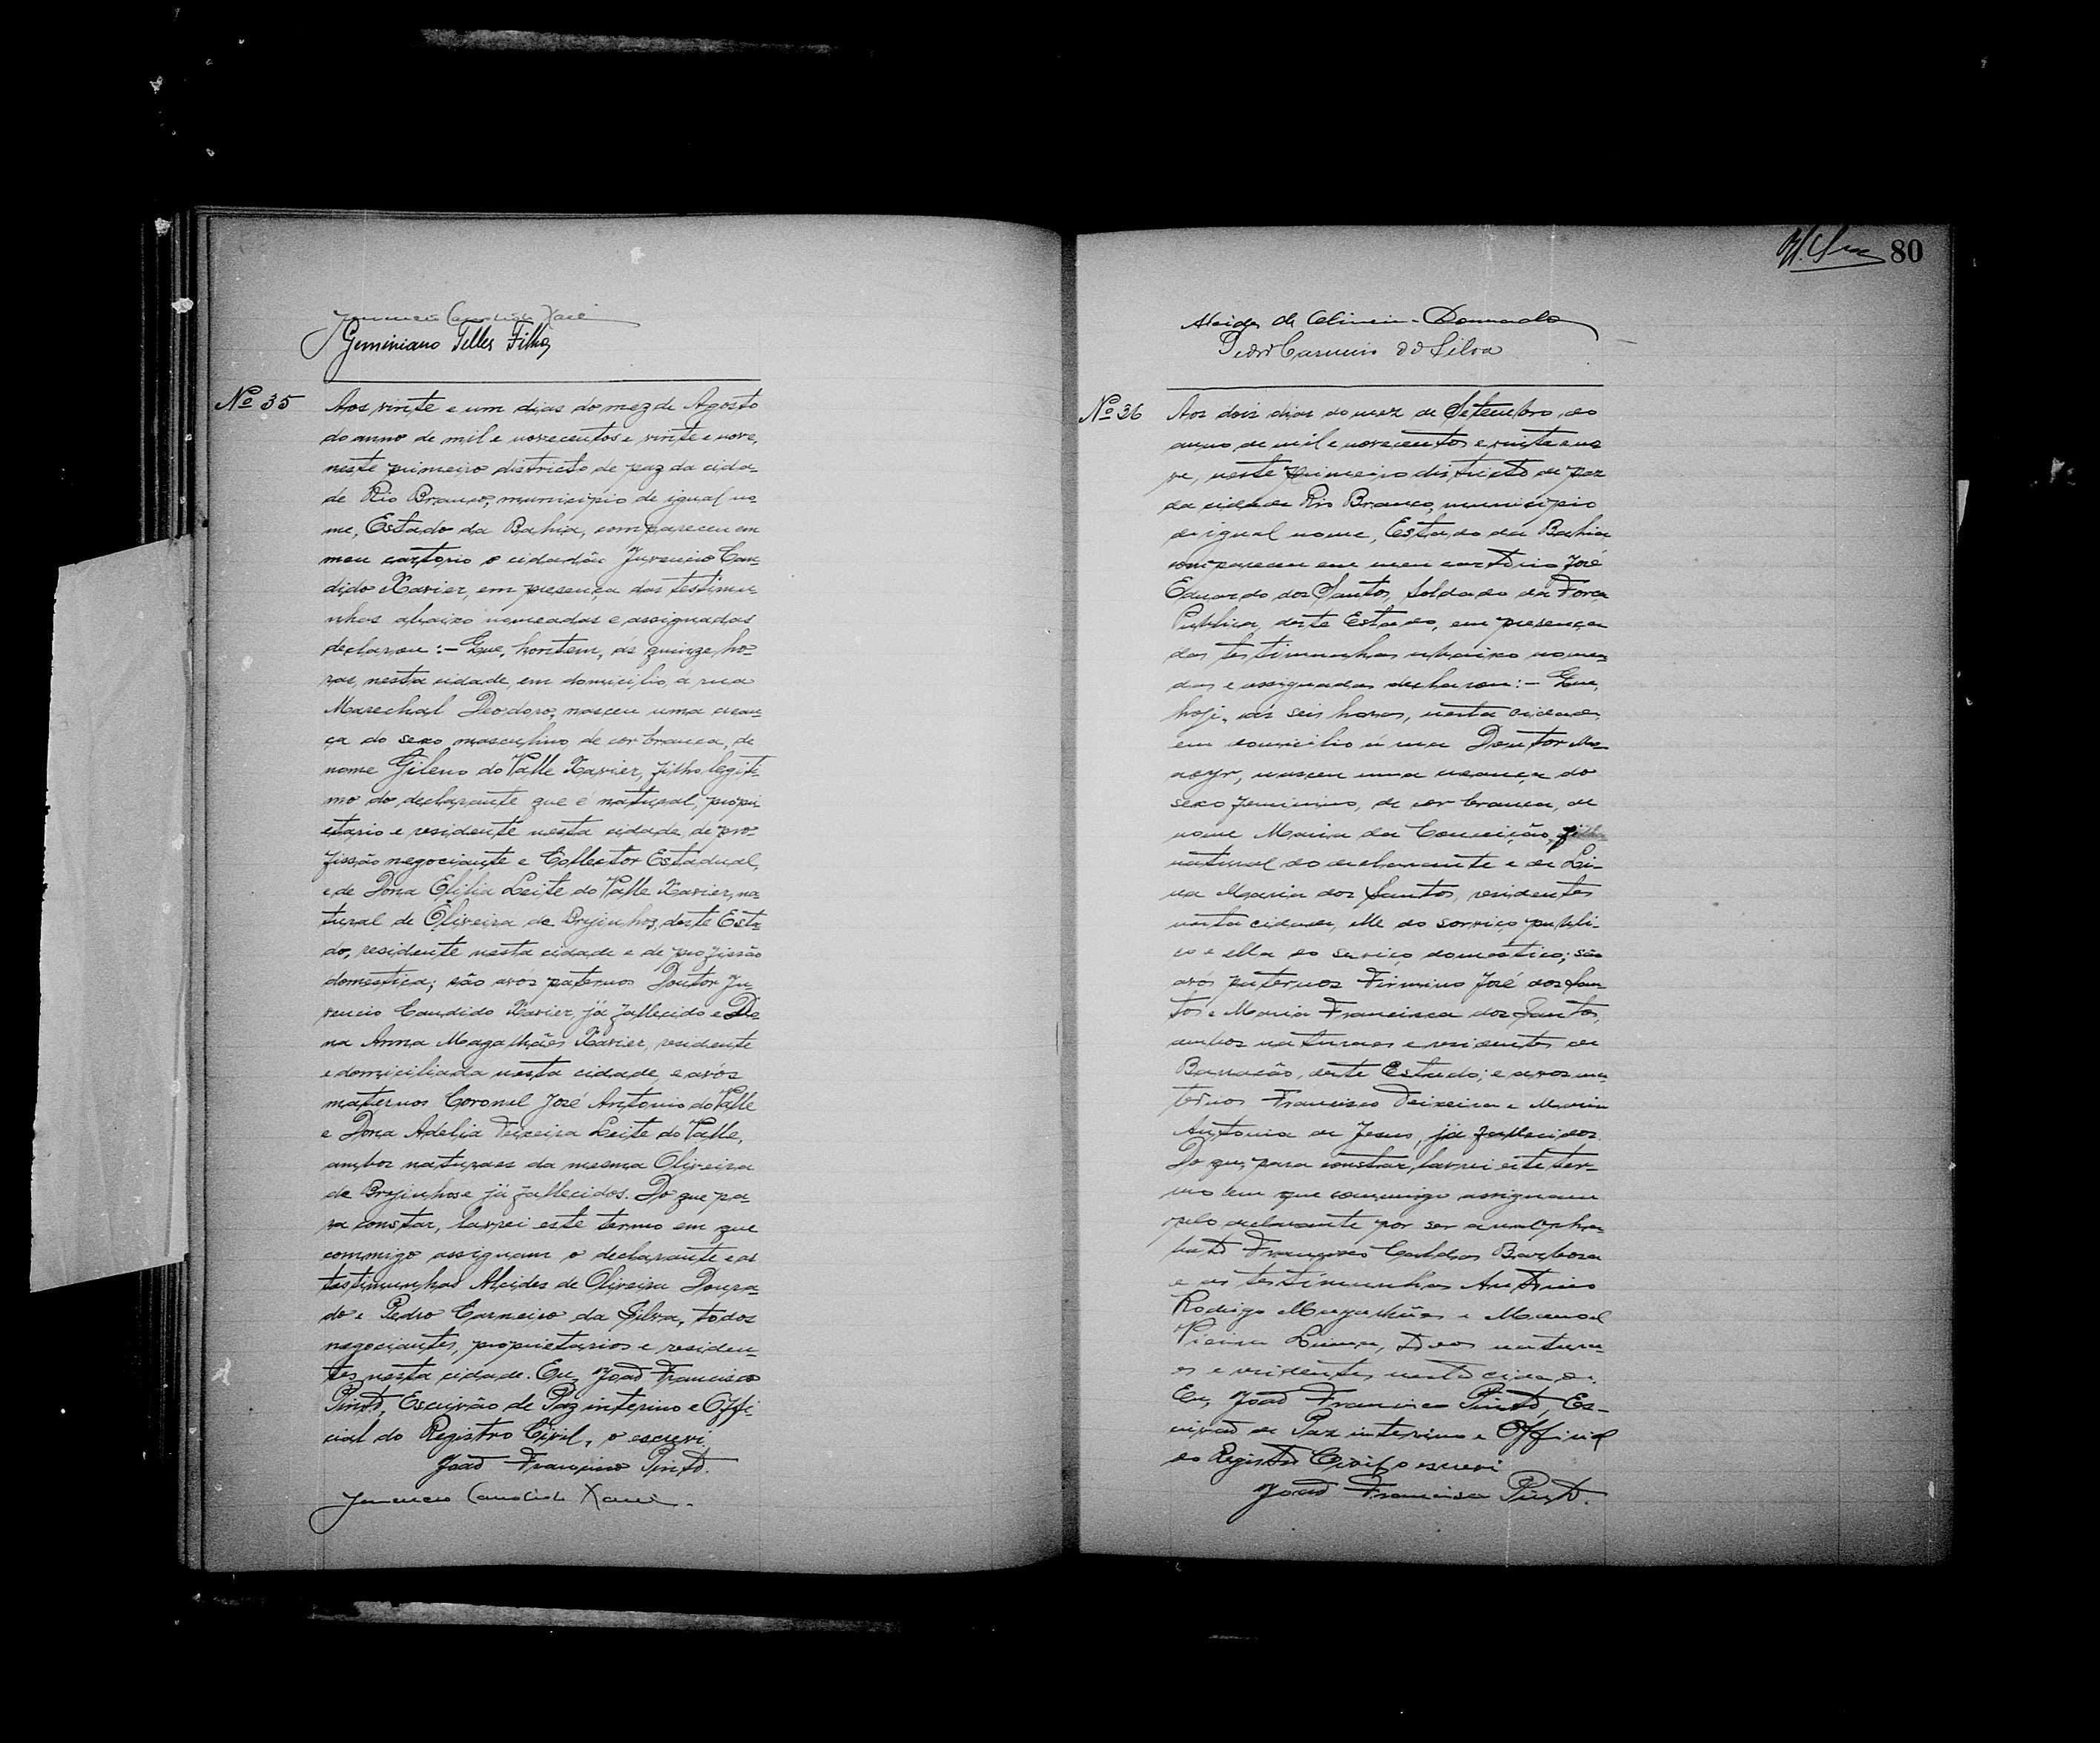 Juvencio Candido Xavier
Geminiano Telles Filho
Nº 35
Aos vinte e um dias do mez de Agosto
do anno de mil e novecentos e vinte e nove,
neste primeiro districto de paz da cida-
de Rio Branco, municipio de igual no-
me, Estado da Bahia, compareceu em
meu cartorio o cidadão Juvencio Can-
dido Xavier, em presença das testimu-
nhas abaixo nomeadas e assignadas
declarou:- Que, hontem, ás quinze ho-
ras, nesta cidade, em domicilio á rua
Marechal Deodoro, nasceu uma crean-
ça do sexo masculino, de cor branca, de
nome Gileno do Valle Xavier, filho legiti-
mo do declarante que é natural, propri-
etario e residente nesta cidade, de pro-
fissão negociante e Collector Estadual,
e de Dona Elilia Leite do Valle Xavier, na-
tural de Oliveira de Brejinhos, deste Esta-
do, residente nesta cidade e de profissão
domestica; são avós paternos Doutor Ju-
vencio Candido Xavier, já fallecido e Do-
na Anna Magalhães Xavier, residente
e domiciliada nesta cidade, e avós
maternos Coronel José Antonio do Valle
e Dona Adelia Teixeira Leite do Valle,
ambos naturaes da mesma Oliveira
de Brejinhos e já fallecidos. Do que pa-
ra constar, lavrei este termo em que
commigo assignam o declarante e as
testimunhas Alcides de Oliveira Doura-
do e Pedro Carneiro da Silva, todos
negociantes, proprietarios e residen-
tes nesta cidade. Eu, João Francisco
Pinto, Escrivão de Paz interino e Offi-
cial do Registro Civil, o escrevi.
João Francisco Pinto.
Juvencio Candido Xavier.
80
Alcides de Oliveira Dourado
Pedro Carneiro da Silva
Nº 36
Aos dois dias do mez de Setembro do
anno de mil e novecentos e vinte e no-
ve, neste primeiro districto de paz
da cidade Rio Branco, municipio
de igual nome, Estado da Bahia
compareceu em meu cartorio José
Eduardo dos Santos, soldado da Força
Publica deste Estado, em presença
das testimunhas abaixo nomea-
das e assignadas declarou:- Que,
hoje, ás seis horas, nesta cidade,
em domicilio á rua Doutor Mo-
acyr, nasceu uma creança do
sexo feminino, de cor branca, de
nome Maria da Conceição, filha
natural do declarante e de Li-
na Maria dos Santos, residentes
nesta cidade, elle do serviço publi-
co e ella do serviço domestico; são
avós paternos Firmino José dos San-
tos e Maria Francisca dos Santos,
ambos naturaes e residentes de
deste Estado; e avós ma-
ternos Francisco Teixeira e Maria
Antonia de Jesus, já fallecidos.
Do que, para constar, lavrei este ter-
mo em que commigo assignam
pelo declarante por ser analpha-
beto Francisco Caldas Barbosa
e as testimunhas Antonio
Rodrigo Magalhães e Manoel
Vieira Lima, todos natura-
es e residentes nesta cidade.
Eu, João Francisco Pinto, Es-
crivão de Paz interino e Official
do Registro Civil o escrevi
João Francisco Pinto.